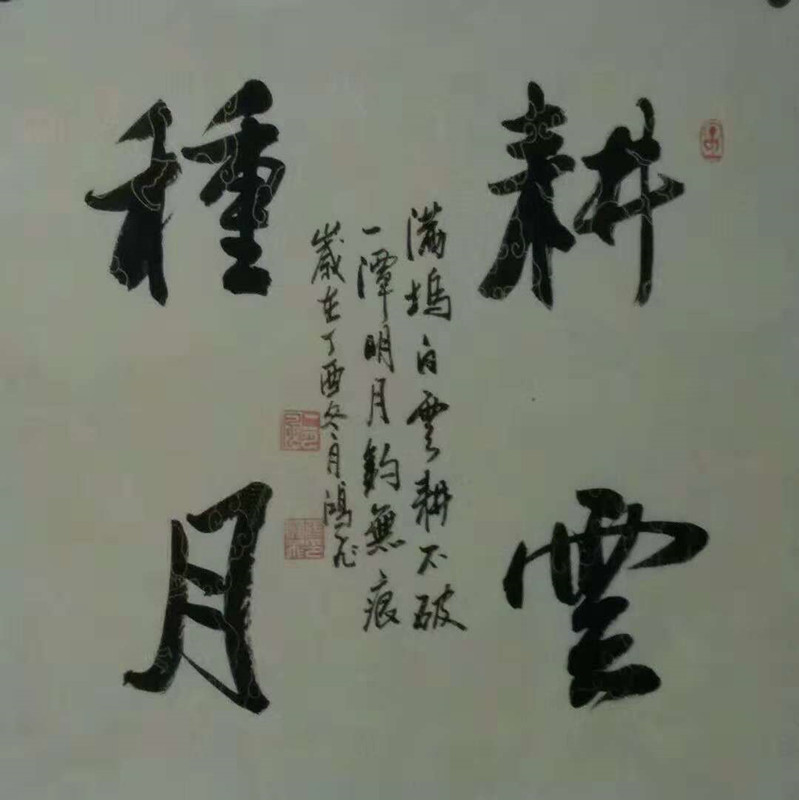 耕雲
種月
滿塢白雲耕不破
一潭明月釣無痕
歲在丁酉冬月鴻飛